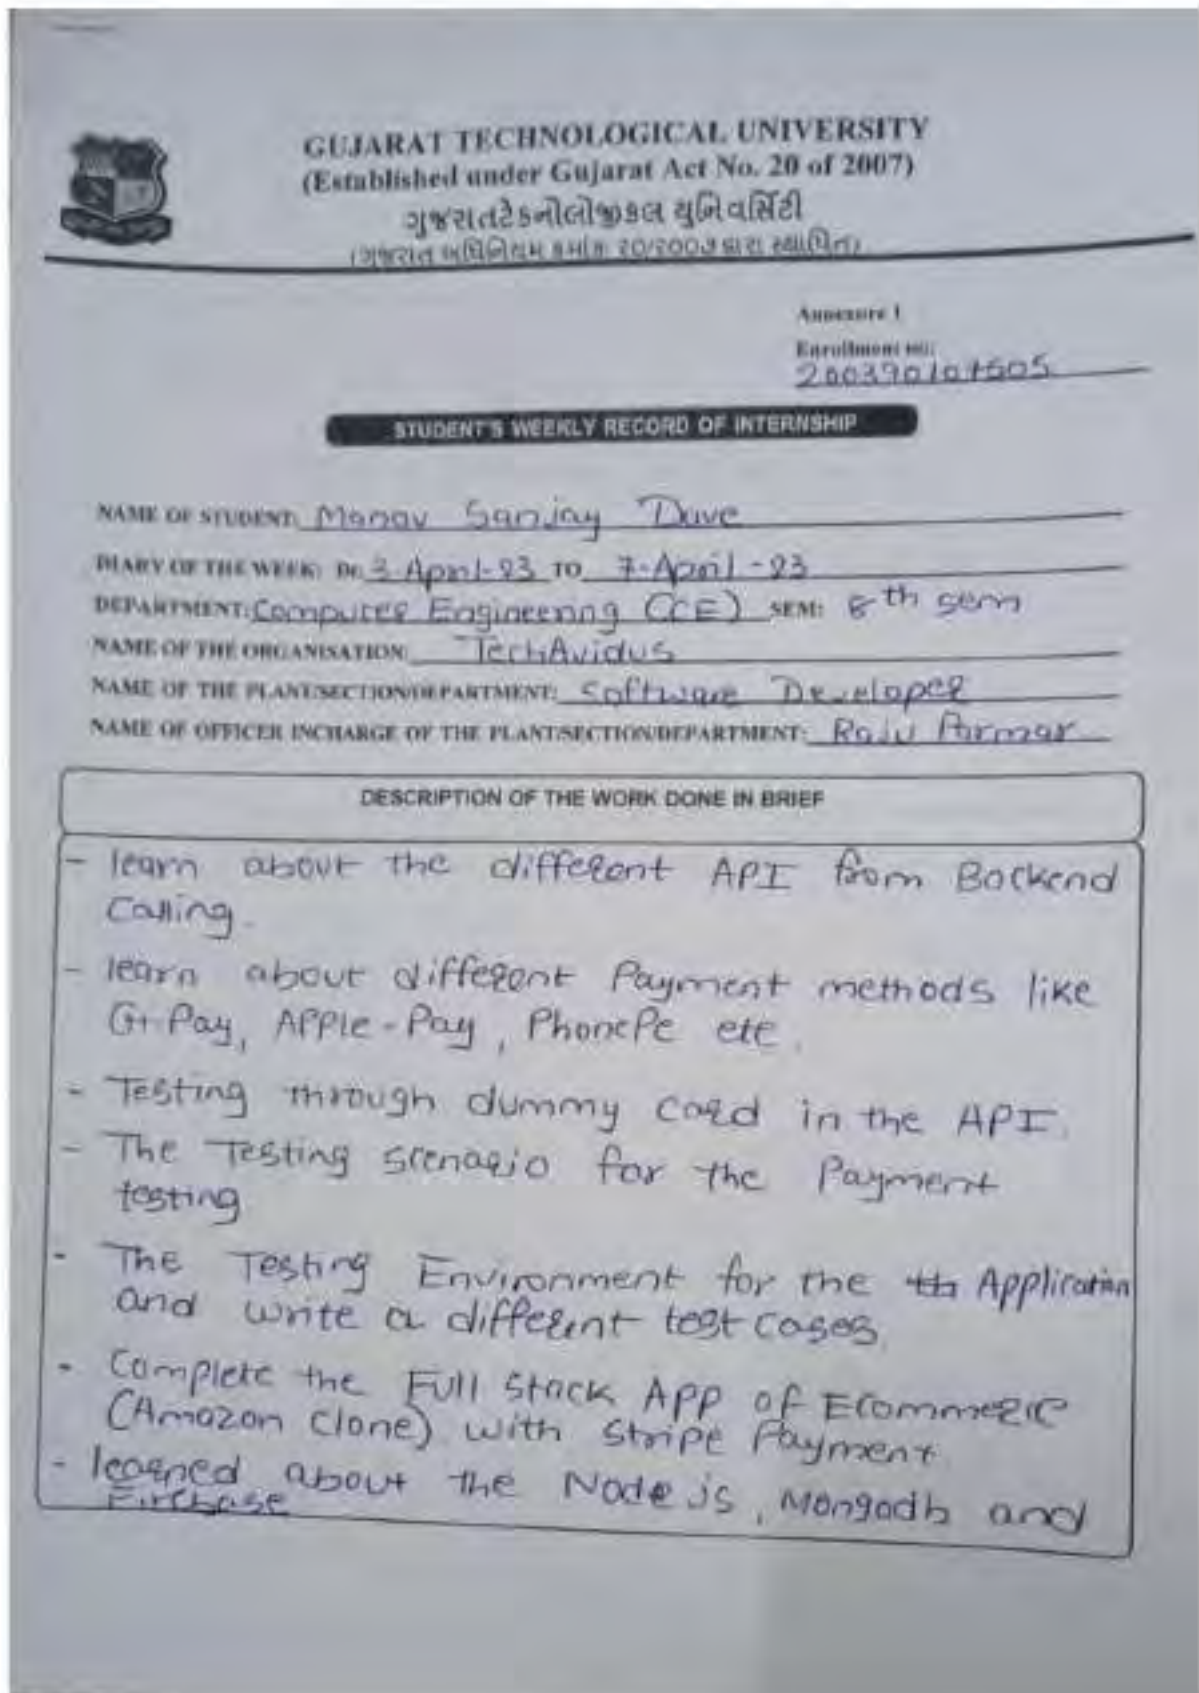 GUJARAT TECHNOLOGICAL UNIVERSITY
(Established under Gujarat Act No. 20 of 2007)
ગુજરાતટેકનોલોજીકલ યુનિવર્સિટી
(ગુજરાત અધિનિયમ ક્રમાંક ૨૦/૨૦૦૭ દ્વારા સ્થાપિત)
Annexure 1
Enrollment no:
STUDENT'S WEEKLY RECORD OF INTERNSHIP
NAME OF STUDENT: Manav Sanjay Dave
DIARY OF THE WEEK: Dt: 3-April-23 TO 7-April-23
DEPARTMENT: Computer Engineering (CE) SEM: 8th sem
NAME OF THE ORGANISATION: TechAvidus
NAME OF THE PLANT/SECTION/DEPARTMENT: Software Developer
NAME OF OFFICER INCHARGE OF THE PLANT/SECTION/DEPARTMENT: Raju Parmar
DESCRIPTION OF THE WORK DONE IN BRIEF
- learn about the different API from Backend
Calling.
- learn about different Payment methods like
G-Pay, Apple-Pay, PhonePe etc.
- Testing through dummy card in the API.
- The Testing scenario for the Payment
testing
- The Testing Environment for the th Application
and write a different test cases.
- Complete the Full Stack App of Ecommerce
(Amazon Clone) with Stripe Payment.
- learned about the Node js, Mongodb and
Firebase